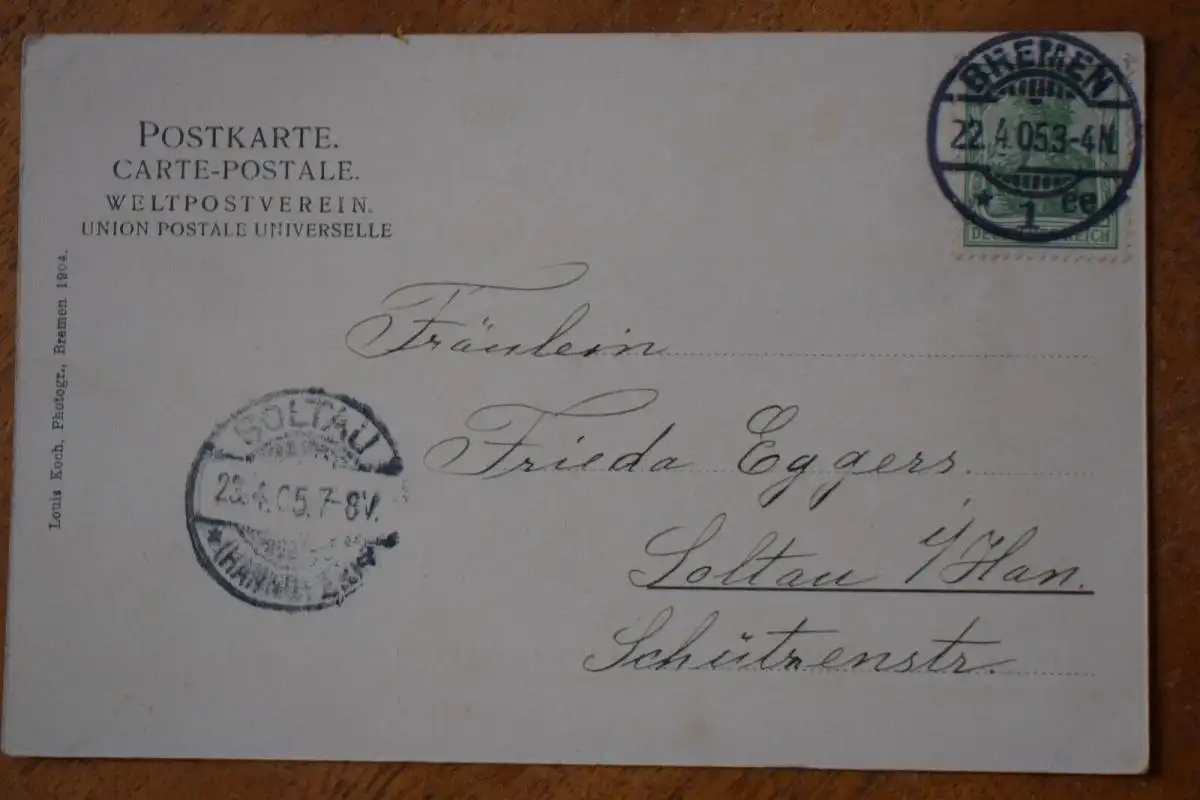 POSTKARTE.
CARTE-POSTALE.
WELTPOSTVEREIN.
UNION POSTALE UNIVERSELLE
BREMEN
22.4.05.3-4N.
* 1 ee
Louis Koch, Photogr., Bremen 1904.
Fräulein
Frieda Eggers.
Soltau i/Han.
Schützenstr.
SOLTAU
23.4.05.7-8V.